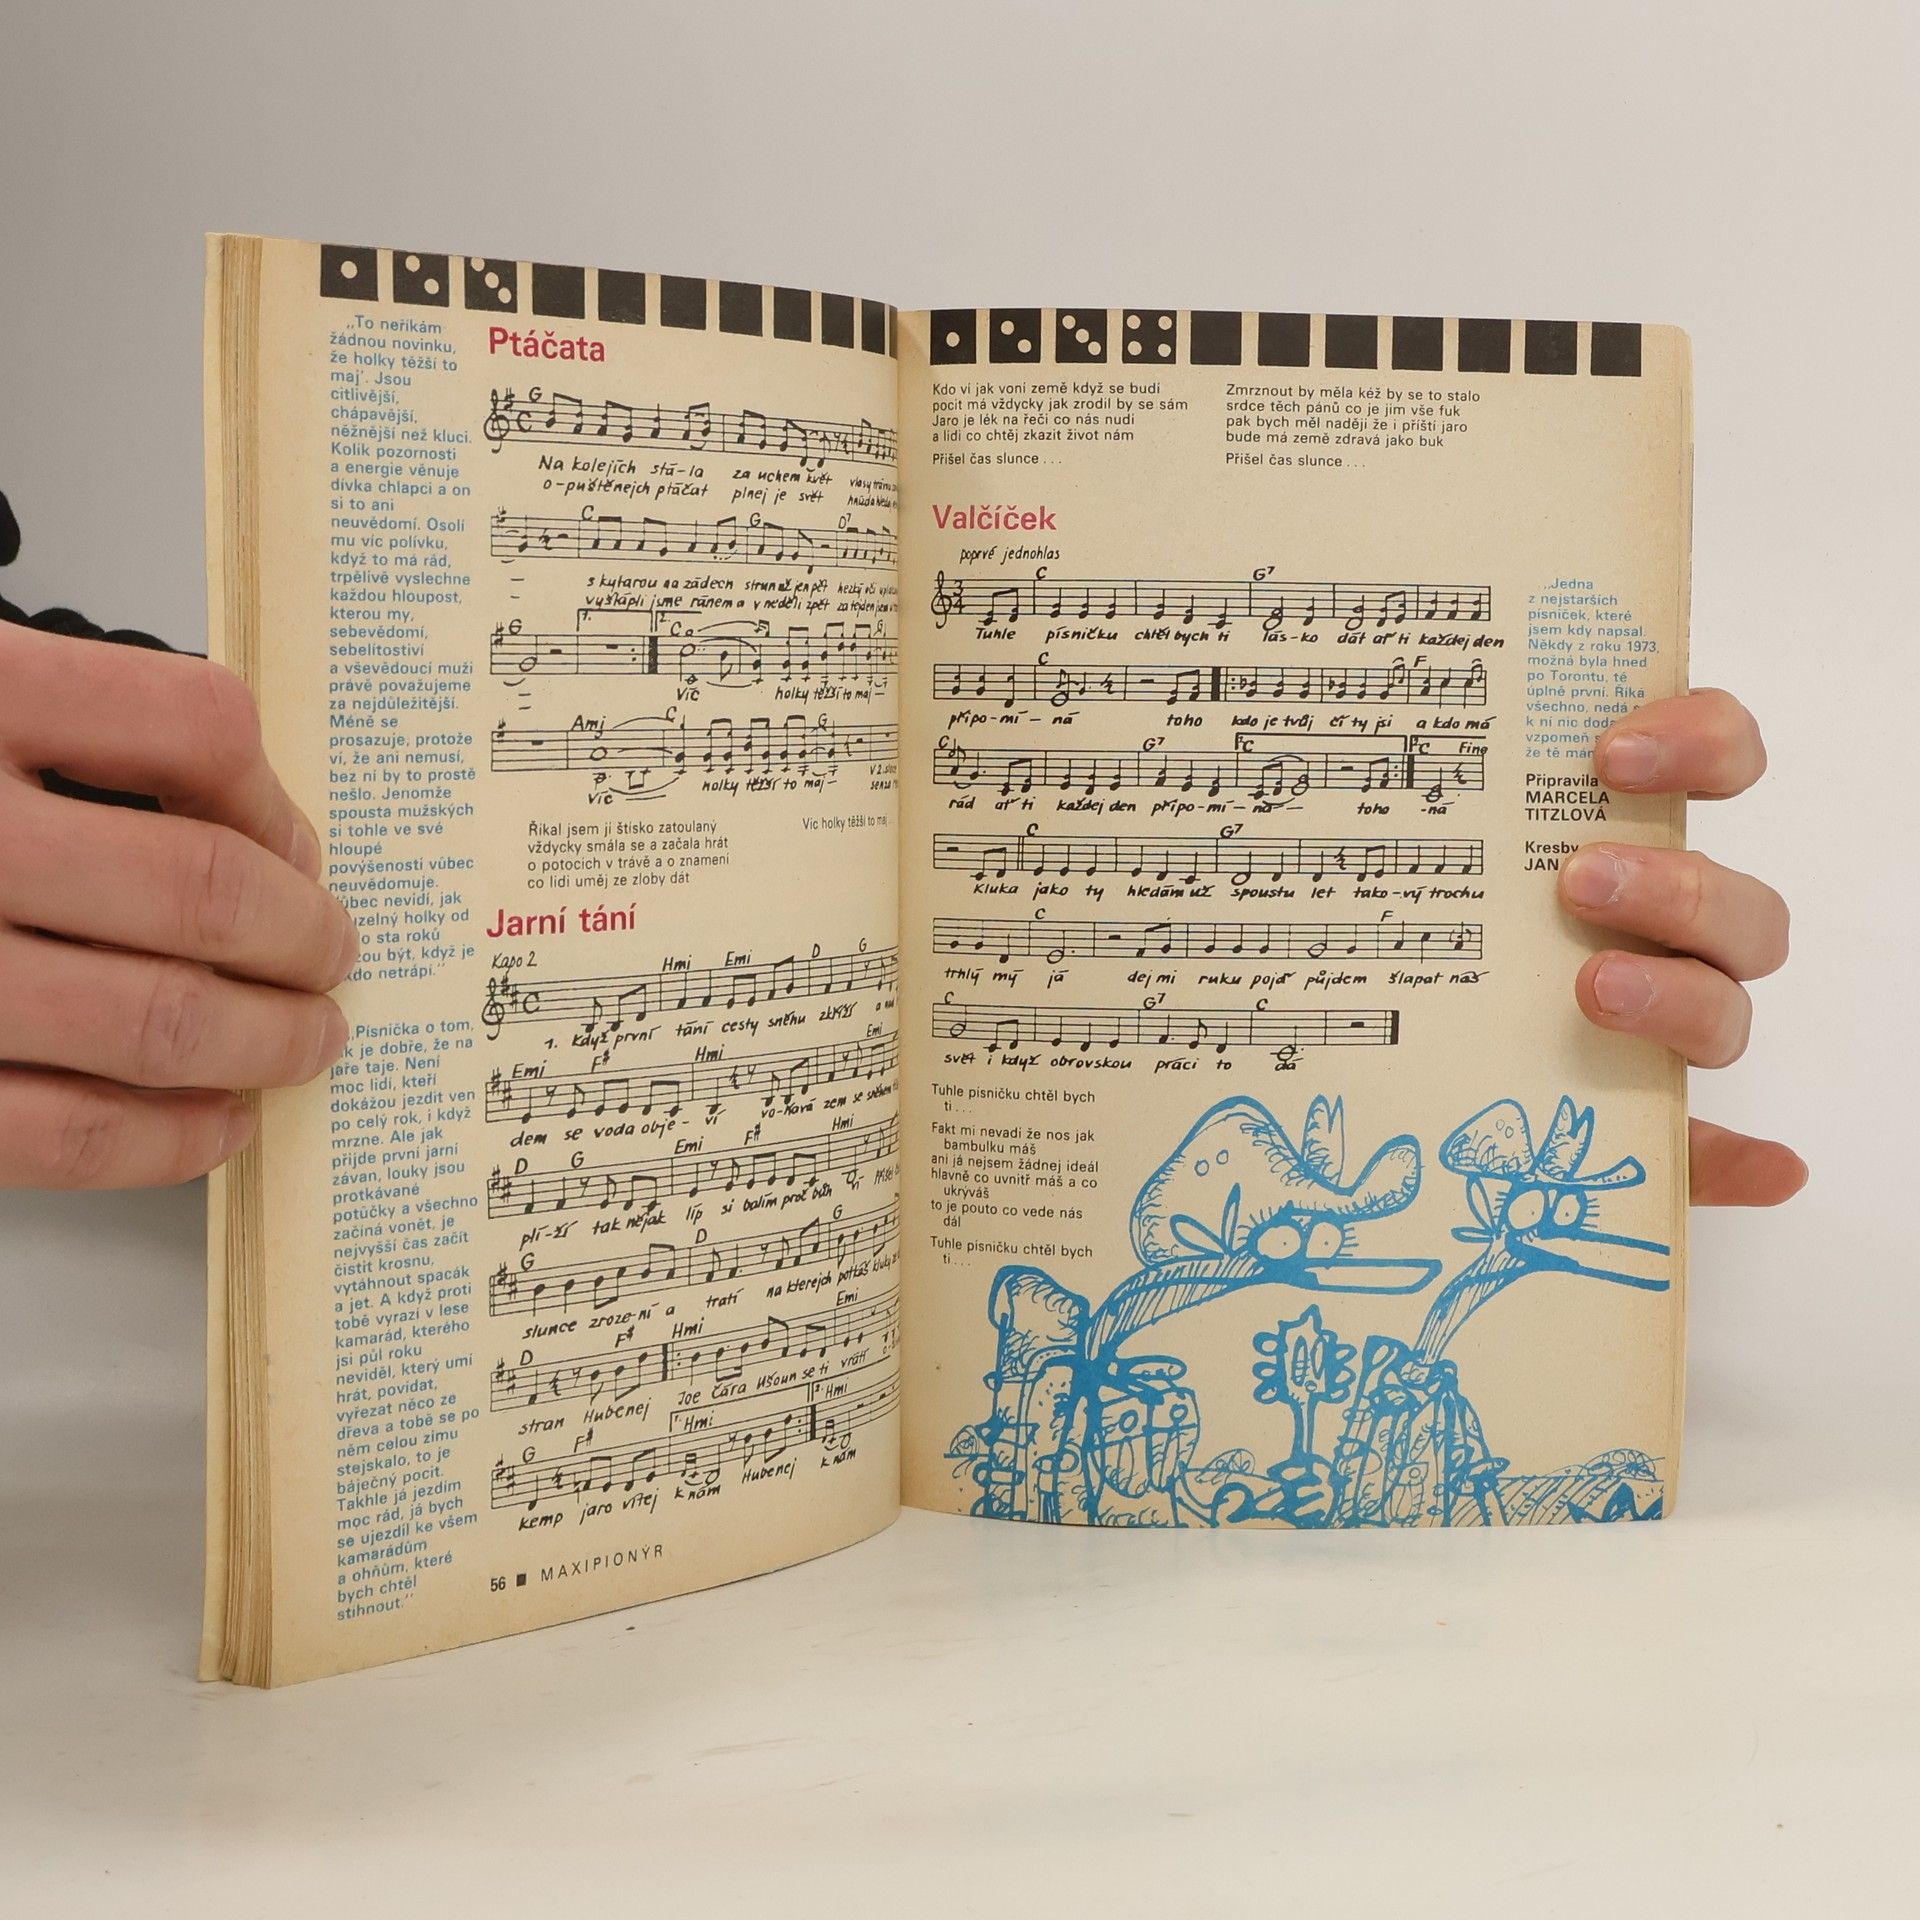 „To neříkám
žádnou novinku,
že holky těžší to
maj'. Jsou
citlivější,
chápavější,
něžnější než kluci.
Kolik pozornosti
a energie věnuje
dívka chlapci a on
si to ani
neuvědomí. Osolí
mu víc polívku,
když to má rád,
trpělivě vyslechne
každou hloupost,
kterou my,
sebevědomí,
sebelítostiví
a vševědoucí muži
právě považujeme
za nejdůležitější.
Méně se
prosazuje, protože
ví, že ani nemusí,
bez ní by to prostě
nešlo. Jenomže
spousta mužských
si tohle ve své
hloupé
povýšenosti vůbec
neuvědomuje.
vůbec nevidí, jak
holky od
sta roků
být, když je
netrápí."
„Písnička o tom,
je dobře, že na
jaře taje. Není
moc lidí, kteří
dokážou jezdit ven
po celý rok, i když
mrzne. Ale jak
přijde první jarní
závan, louky jsou
protkávané
potůčky a všechno
začíná vonět, je
nejvyšší čas začít
čistit krosnu,
vytáhnout spacák
a jet. A když proti
tobě vyrazí v lese
kamarád, kterého
jsi půl roku
neviděl, který umí
hrát, povídat,
vyřezat něco ze
dřeva a tobě se po
něm celou zimu
stejskalo, to je
báječný pocit.
Takhle já jezdím
moc rád, já bych
se ujezdil ke všem
kamarádům
a ohňům, které
bych chtěl
stihnout."
Ptáčata
G
Na kolejích stá-la za uchem květ vlasy
o-puštěnejch ptáčat plnej je svět
C G D7
s kytarou na zádech strun už jen pět hezký oči
vyšlápli jsme ránem a v neděli zpět za tejden
G 1. 2. C G
Víc holky těžší to maj-
Ami C G
Víc holky těžší to maj-
Říkal jsem jí štísko zatoulaný
vždycky smála se a začala hrát
o potocích v trávě a o znamení
co lidi uměj ze zloby dát
Víc holky těžší to maj
Jarní tání
Kapo 2
Hmi Emi D G
1. Když první tání cesty sněhu zkříží
Emi F# Hmi Emi
dem se voda obje-ví vo-ňavá zem se sněhem
D G Emi F# Hmi
plí-ží tak nějak líp si balím proč bůh ví
G D G
slunce zroze-ní a tratí na kterejch potkáš kluky
D F# Hmi Emi
stran Hubenej Joe Čára Ušoun se ti vrátí
G F# 1. Hmi 2. Hmi
kemp jaro vítej k nám Hubenej k nám
56 ■ MAXIPIONÝR
Kdo ví jak voní země když se budí
pocit má vždycky jak zrodil by se sám
Jaro je lék na řeči co nás nudí
a lidi co chtěj zkazit život nám
Přišel čas slunce . . .
Zmrznout by měla kéž by se to stalo
srdce těch pánů co je jim vše fuk
pak bych měl naději že i příští jaro
bude má země zdravá jako buk
Přišel čas slunce . . .
Valčíček
poprvé jednohlas
C G7
Tuhle písničku chtěl bych ti lás-ko dát ať ti každej den
C F
připo-mí-ná toho kdo je tvůj čí ty jsi a kdo má
C G7 1. C 2. C Fine
rád ať ti každej den připo-mí-ná- toho -ná
C G7
Kluka jako ty hledám už spoustu let tako-vý trochu
C F
trhlý mý já dej mi ruku pojď půjdem šlapat náš
C G7 C
svět i když obrovskou práci to dá
Tuhle písničku chtěl bych
ti . . .
Fakt mi nevadí že nos jak
bambulku máš
ani já nejsem žádnej ideál
hlavně co uvnitř máš a co
ukrýváš
to je pouto co vede nás
dál
Tuhle písničku chtěl bych
ti . . . .
„Jedna
z nejstarších
písniček, které
jsem kdy napsal.
Někdy z roku 1973,
možná byla hned
po Torontu, té
úplně první. Říká
všechno, nedá
k ní nic
vzpomeň
že tě
Připravila
MARCELA
TITZLOVÁ
Kresby
JAN